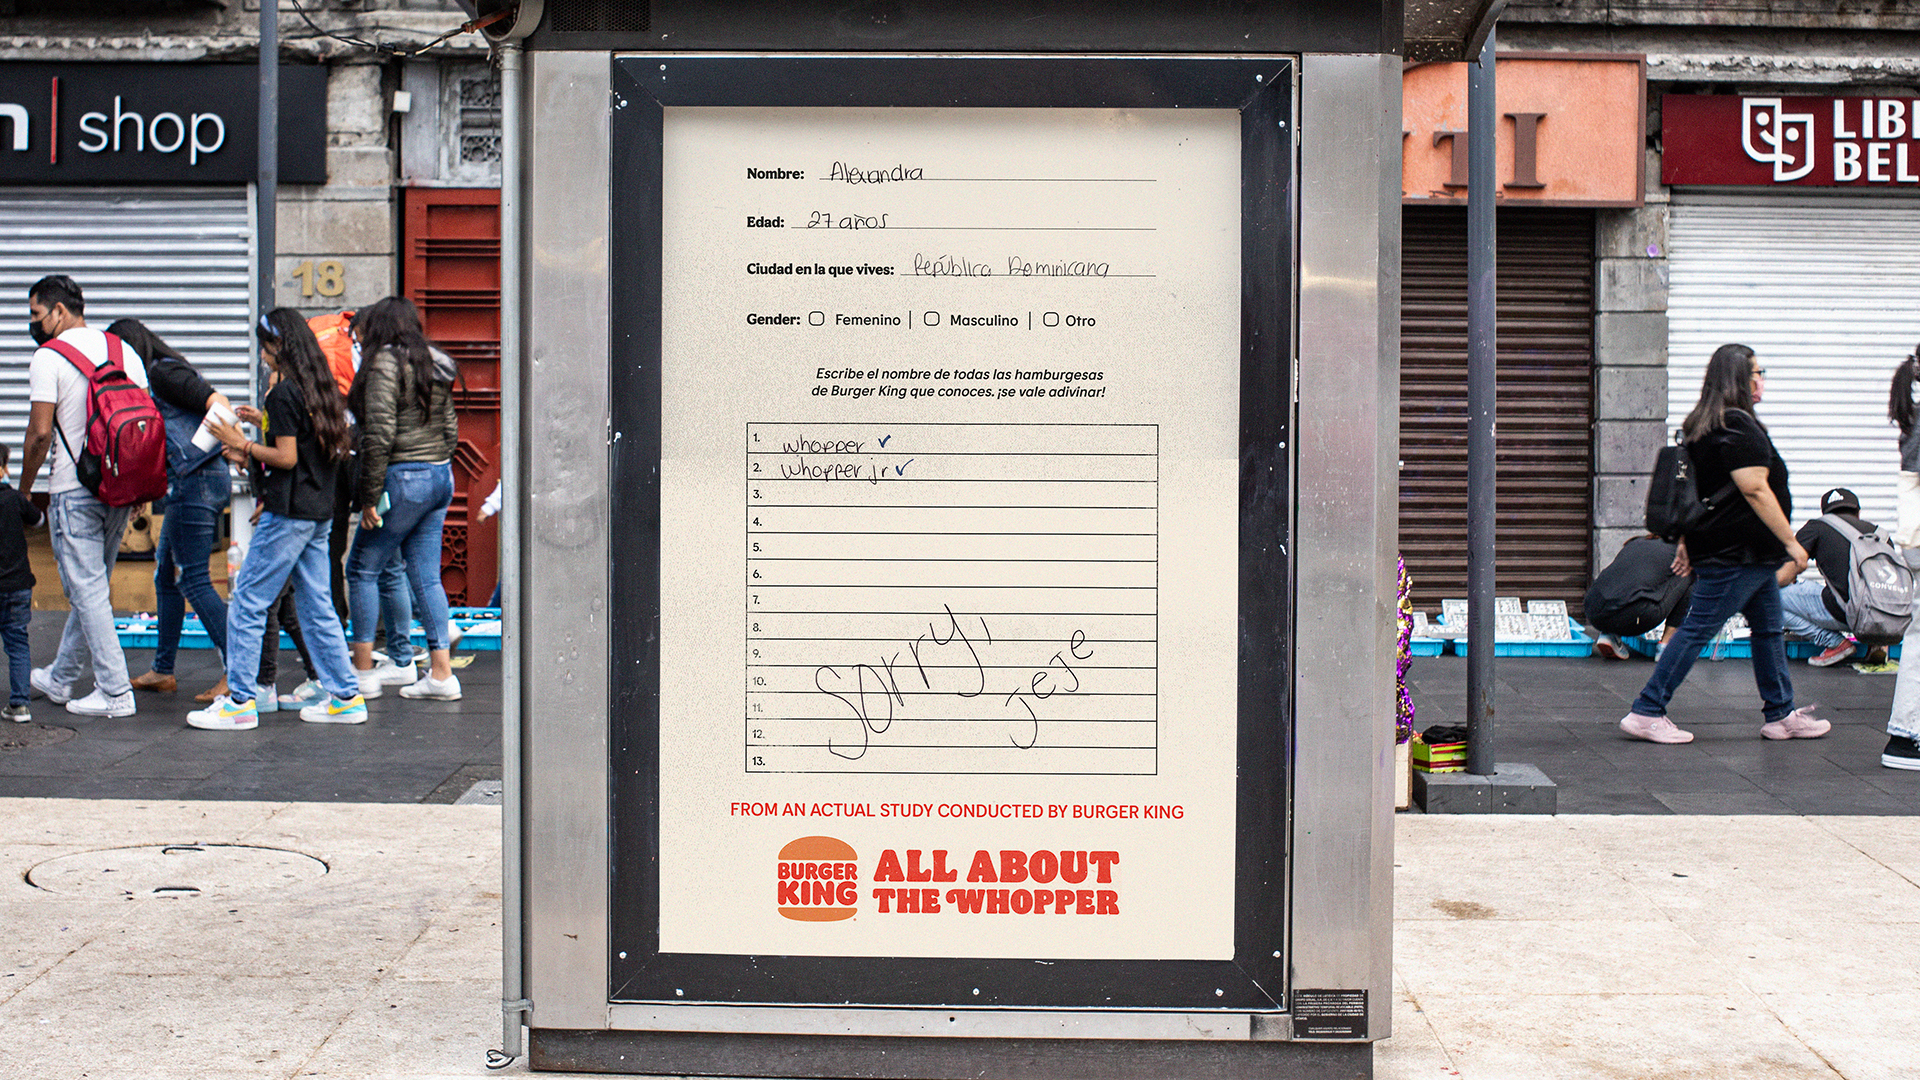 n | shop
18
TI
LIB
BEL
Nombre: Alexandra
Edad: 27 años
Ciudad en la que vives: República Dominicana
Gender: Femenino | Masculino | Otro
Escribe el nombre de todas las hamburgesas
de Burger King que conoces. ¡se vale adivinar!
1. whopper ✓
2. whopper jr ✓
3.
4.
5.
6.
7.
8.
9.
10.
11.
12.
13.
Sorry, jeje
FROM AN ACTUAL STUDY CONDUCTED BY BURGER KING
BURGER KING
ALL ABOUT
THE WHOPPER
CONVERSE